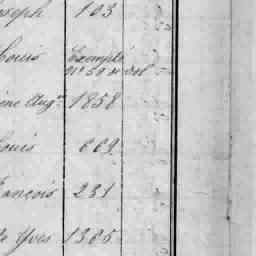 oseph 103
Louis Exempté
ine Aug. 1858
Louis 669
rançois 231
Yves 1365